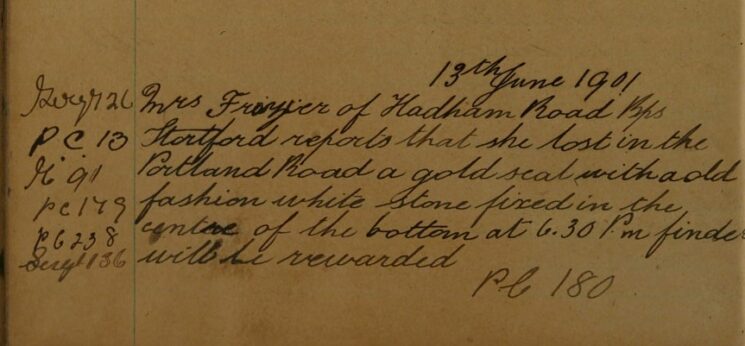 13th June 1901
Sergt 26 Mrs Frazier of Hadham Road Bps
P.C. 13 Stortford reports that she lost in the
91 Portland Road a gold seal with a old
PC 179 fashion white stone fixed in the
PC 238 centre of the bottom at 6.30 Pm finder
Sergt 136 will be rewarded
PC 180